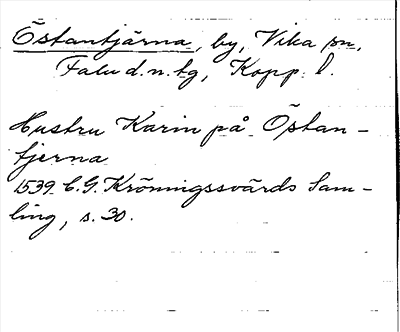 Östantjärna, by, Vika sn,
Falu d.n. tg, Kopp. l.
Hustru Karin på Östan-
tjerna
1539. C.G. Kröningssvärds Sam-
ling, s. 30.